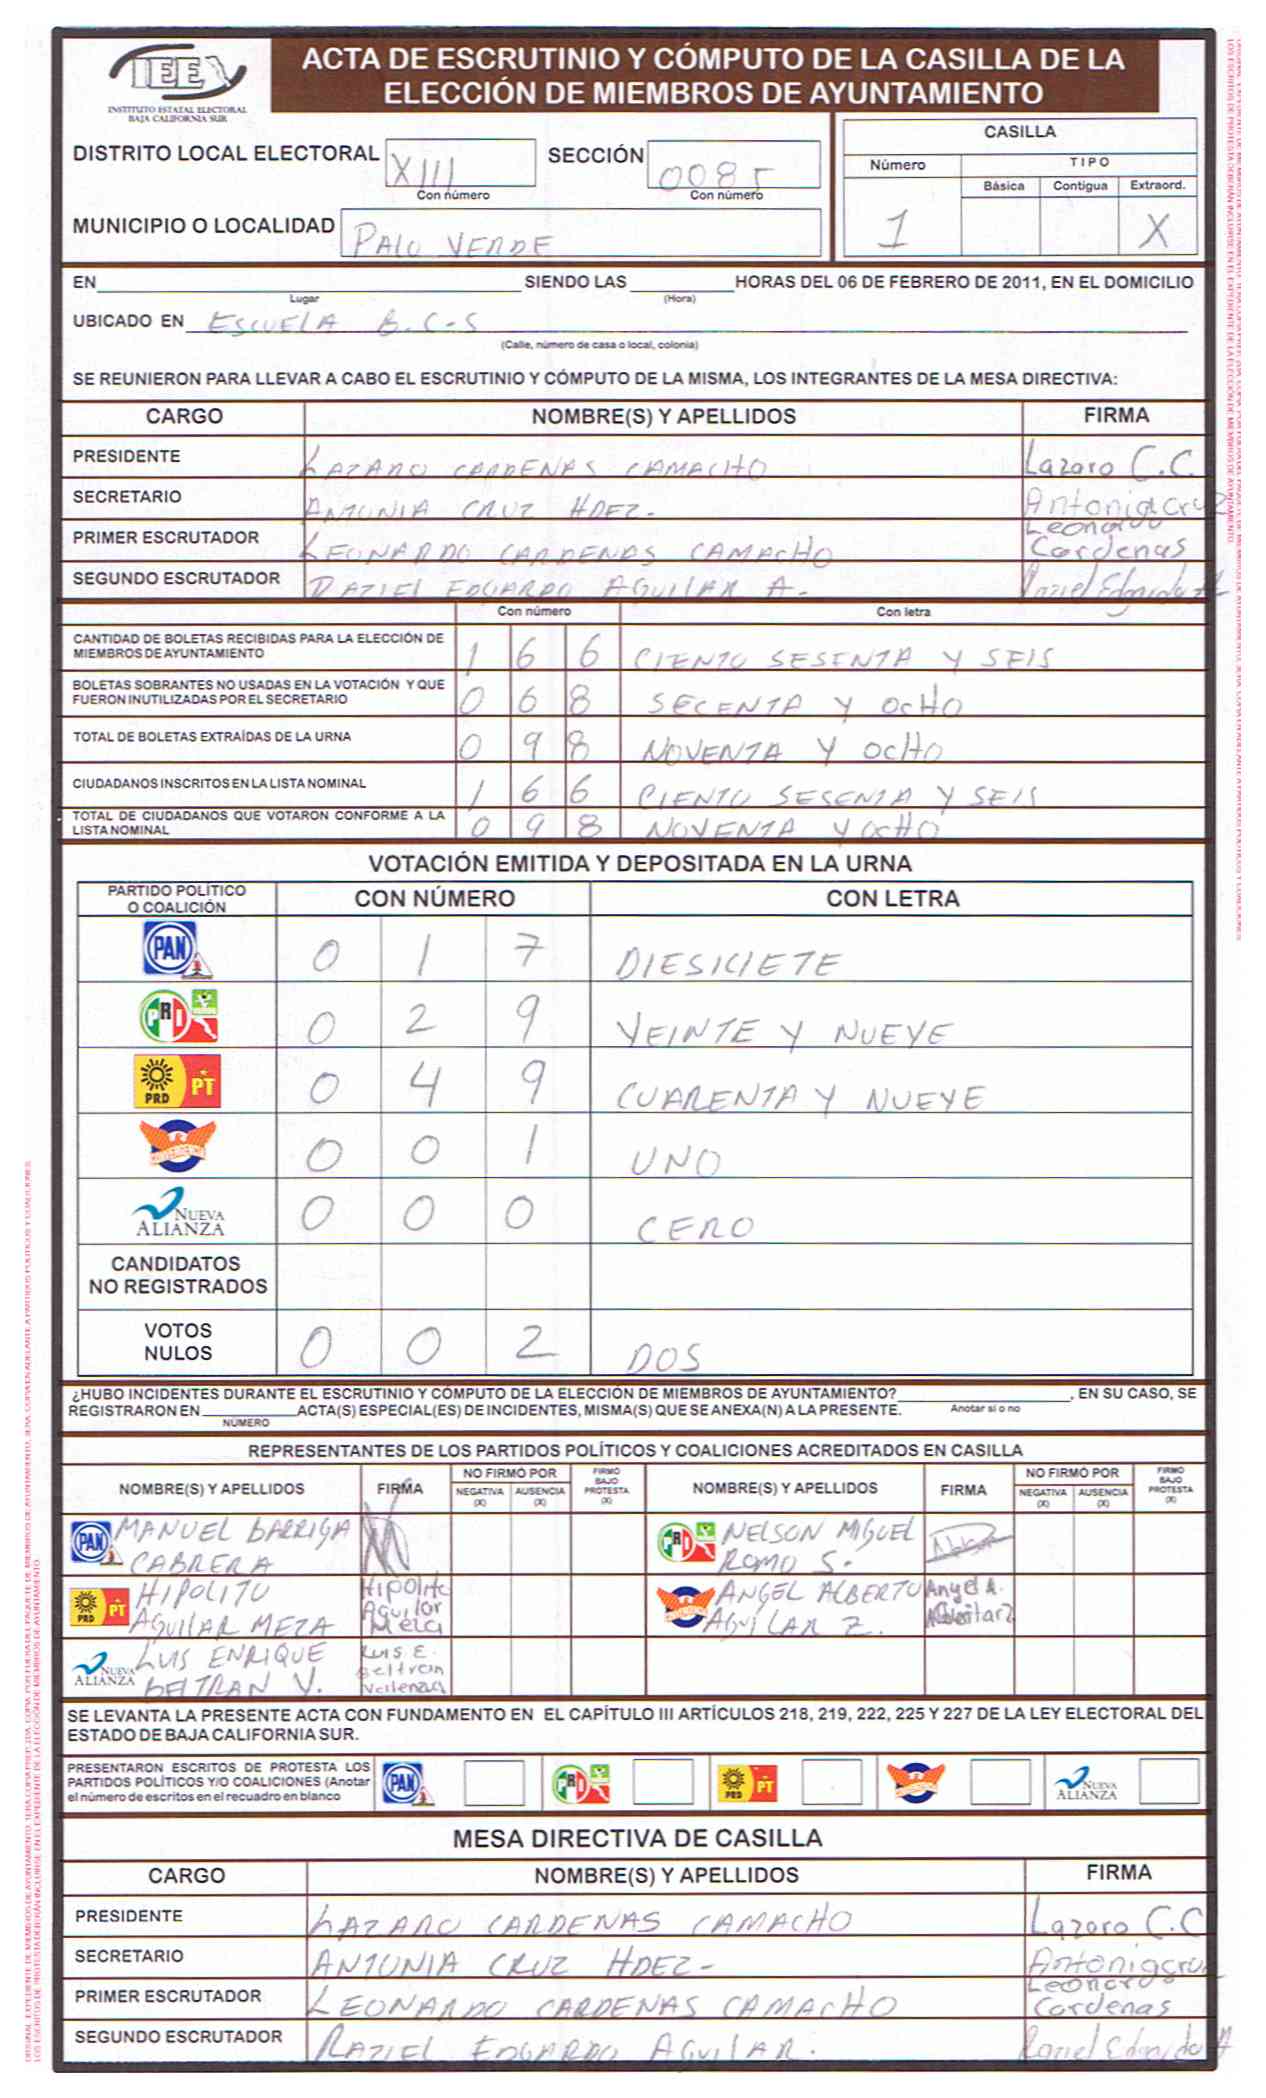 IEE
INSTITUTO ESTATAL ELECTORAL
BAJA CALIFORNIA SUR
ACTA DE ESCRUTINIO Y CÓMPUTO DE LA CASILLA DE LA
ELECCIÓN DE MIEMBROS DE AYUNTAMIENTO
DISTRITO LOCAL ELECTORAL XIII SECCIÓN 0085
Con número Con número
MUNICIPIO O LOCALIDAD PALO VERDE
CASILLA
Número TIPO
Básica Contigua Extraord.
1 X
EN SIENDO LAS HORAS DEL 06 DE FEBRERO DE 2011, EN EL DOMICILIO
Lugar (Hora)
UBICADO EN ESCUELA B.C-S
(Calle, número de casa o local, colonia)
SE REUNIERON PARA LLEVAR A CABO EL ESCRUTINIO Y CÓMPUTO DE LA MISMA, LOS INTEGRANTES DE LA MESA DIRECTIVA:
CARGO NOMBRE(S) Y APELLIDOS FIRMA
PRESIDENTE LAZARO CARDENAS CAMACHO Lazaro C.C.
SECRETARIO ANTONIA CRUZ HDEZ. Antonia Cruz
PRIMER ESCRUTADOR LEONARDO CARDENAS CAMACHO Leonardo Cardenas
SEGUNDO ESCRUTADOR RAZIEL EDGARDO AGUILAR A. Raziel Edgardo A
Con número Con letra
CANTIDAD DE BOLETAS RECIBIDAS PARA LA ELECCIÓN DE
MIEMBROS DE AYUNTAMIENTO 1 6 6 CIENTO SESENTA Y SEIS
BOLETAS SOBRANTES NO USADAS EN LA VOTACIÓN Y QUE
FUERON INUTILIZADAS POR EL SECRETARIO 0 6 8 SECENTA Y OCHO
TOTAL DE BOLETAS EXTRAÍDAS DE LA URNA 0 9 8 NOVENTA Y OCHO
CIUDADANOS INSCRITOS EN LA LISTA NOMINAL 1 6 6 CIENTO SESENTA Y SEIS
TOTAL DE CIUDADANOS QUE VOTARON CONFORME A LA
LISTA NOMINAL 0 9 8 NOVENTA Y OCHO
VOTACIÓN EMITIDA Y DEPOSITADA EN LA URNA
PARTIDO POLÍTICO
O COALICIÓN CON NÚMERO CON LETRA
PAN 0 1 7 DIESICIETE
PRI 0 2 9 VEINTE Y NUEVE
PRD PT 0 4 9 CUARENTA Y NUEVE
CONVERGENCIA 0 0 1 UNO
NUEVA ALIANZA 0 0 0 CERO
CANDIDATOS
NO REGISTRADOS
VOTOS
NULOS 0 0 2 DOS
¿HUBO INCIDENTES DURANTE EL ESCRUTINIO Y CÓMPUTO DE LA ELECCIÓN DE MIEMBROS DE AYUNTAMIENTO? , EN SU CASO, SE
REGISTRARON EN ACTA(S) ESPECIAL(ES) DE INCIDENTES, MISMA(S) QUE SE ANEXA(N) A LA PRESENTE. Anotar si o no
NÚMERO
REPRESENTANTES DE LOS PARTIDOS POLÍTICOS Y COALICIONES ACREDITADOS EN CASILLA
NOMBRE(S) Y APELLIDOS FIRMA NO FIRMÓ POR NEGATIVA (X) AUSENCIA (X) FIRMÓ BAJO PROTESTA (X) NOMBRE(S) Y APELLIDOS FIRMA NO FIRMÓ POR NEGATIVA (X) AUSENCIA (X) FIRMÓ BAJO PROTESTA (X)
PAN MANUEL BARRIGA PRI NELSON MIGUEL
CABRERA ROMO S.
PRD PT HIPOLITO Hipolito CONVERGENCIA ANGEL ALBERTO Angel A.
AGUILAR MEZA Aguilar Meza AGUILAR Z.
NUEVA ALIANZA LUIS ENRIQUE Luis E.
BELTRAN V. Beltran
SE LEVANTA LA PRESENTE ACTA CON FUNDAMENTO EN EL CAPÍTULO III ARTÍCULOS 218, 219, 222, 225 Y 227 DE LA LEY ELECTORAL DEL
ESTADO DE BAJA CALIFORNIA SUR.
PRESENTARON ESCRITOS DE PROTESTA LOS
PARTIDOS POLÍTICOS Y/O COALICIONES (Anotar
el número de escritos en el recuadro en blanco
PAN PRI PRD PT CONVERGENCIA NUEVA ALIANZA
MESA DIRECTIVA DE CASILLA
CARGO NOMBRE(S) Y APELLIDOS FIRMA
PRESIDENTE LAZARO CARDENAS CAMACHO Lazaro C.C
SECRETARIO ANTONIA CRUZ HDEZ- Antonia Cruz
PRIMER ESCRUTADOR LEONARDO CARDENAS CAMACHO Leonardo Cardenas
SEGUNDO ESCRUTADOR RAZIEL EDGARDO AGUILAR. Raziel Edgardo A